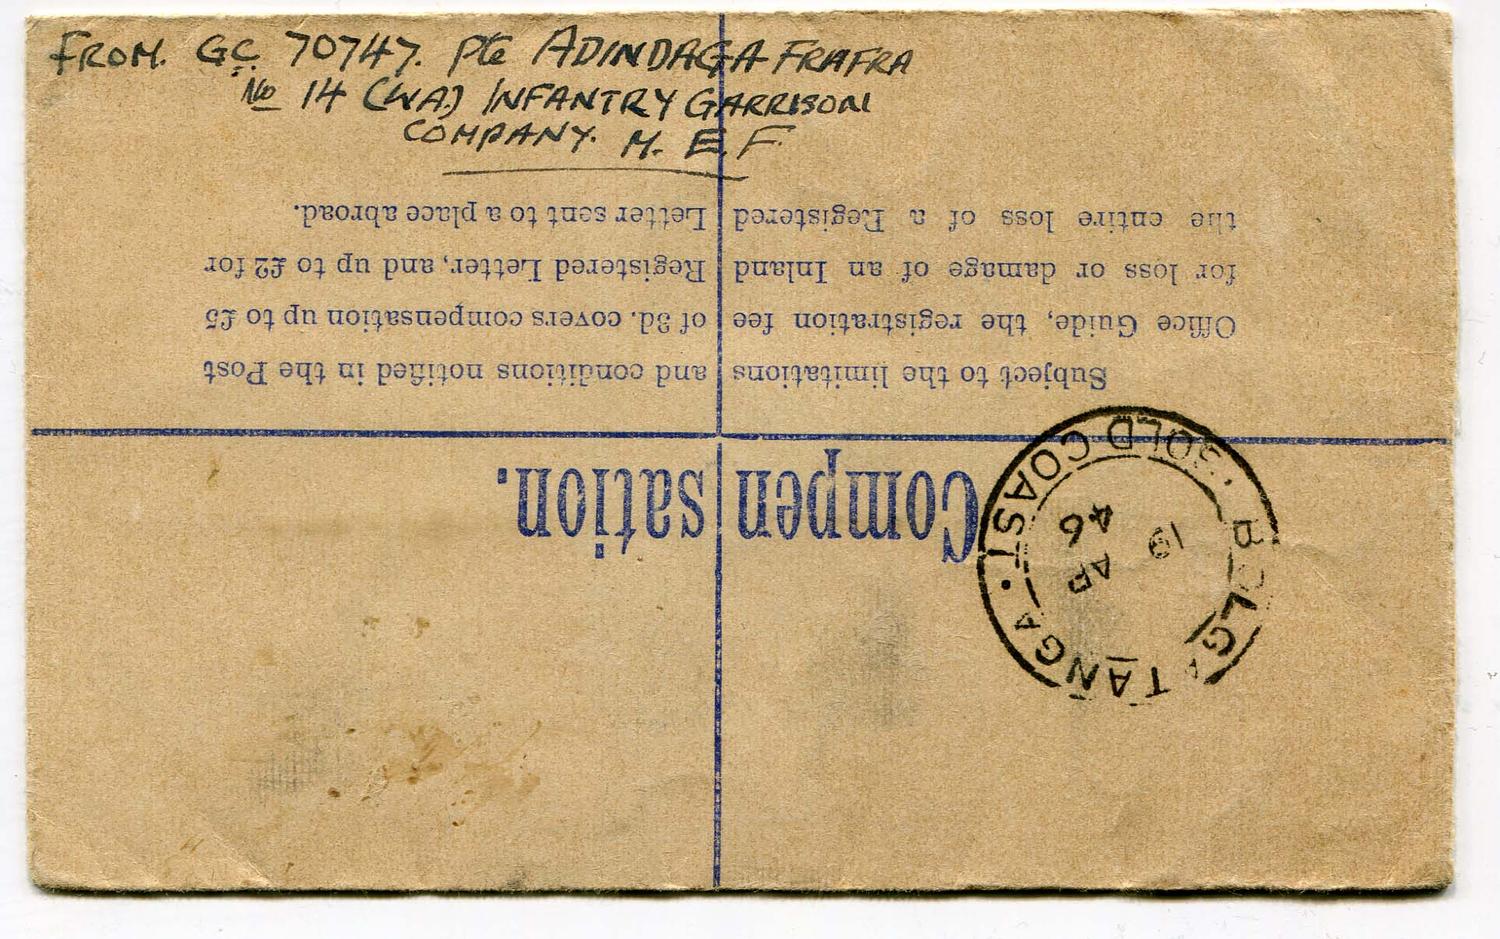 FROM. GC. 70747. Pte ADINDAGA FRAFRA
No 14 (WA) INFANTRY GARRISON
COMPANY. M. E. F.
Compensation.
Subject to the limitations and conditions notified in the Post
Office Guide, the registration fee of 3d. covers compensation up to £5
for loss or damage of an Inland Registered Letter, and up to £2 for
the entire loss of a Registered Letter sent to a place abroad.
BOLGATANGA · GOLD COAST ·
19
AP
46